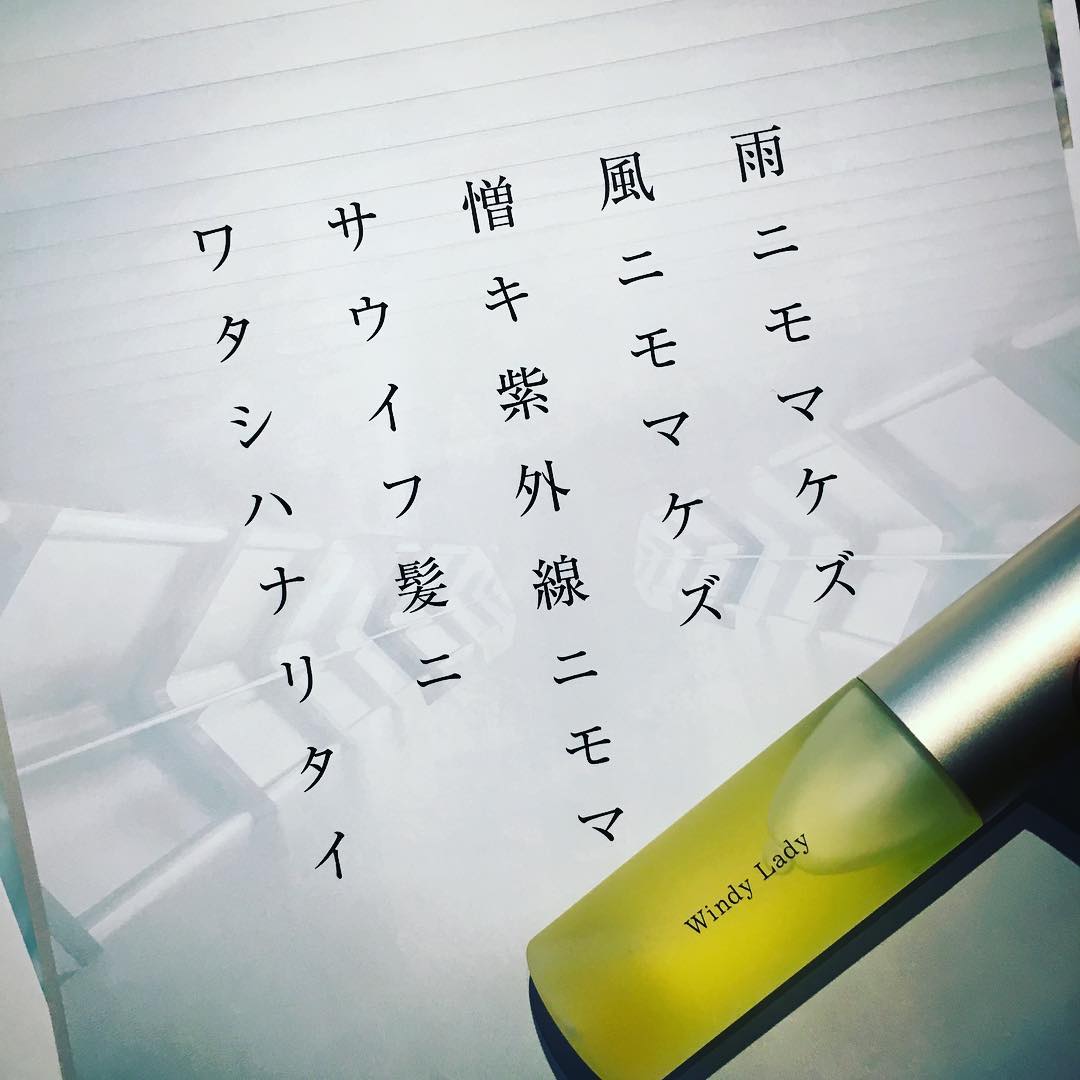 雨ニモマケズ
風ニモマケズ
憎キ紫外線ニモマ
サウイフ髪ニ
ワタシハナリタイ
Windy Lady